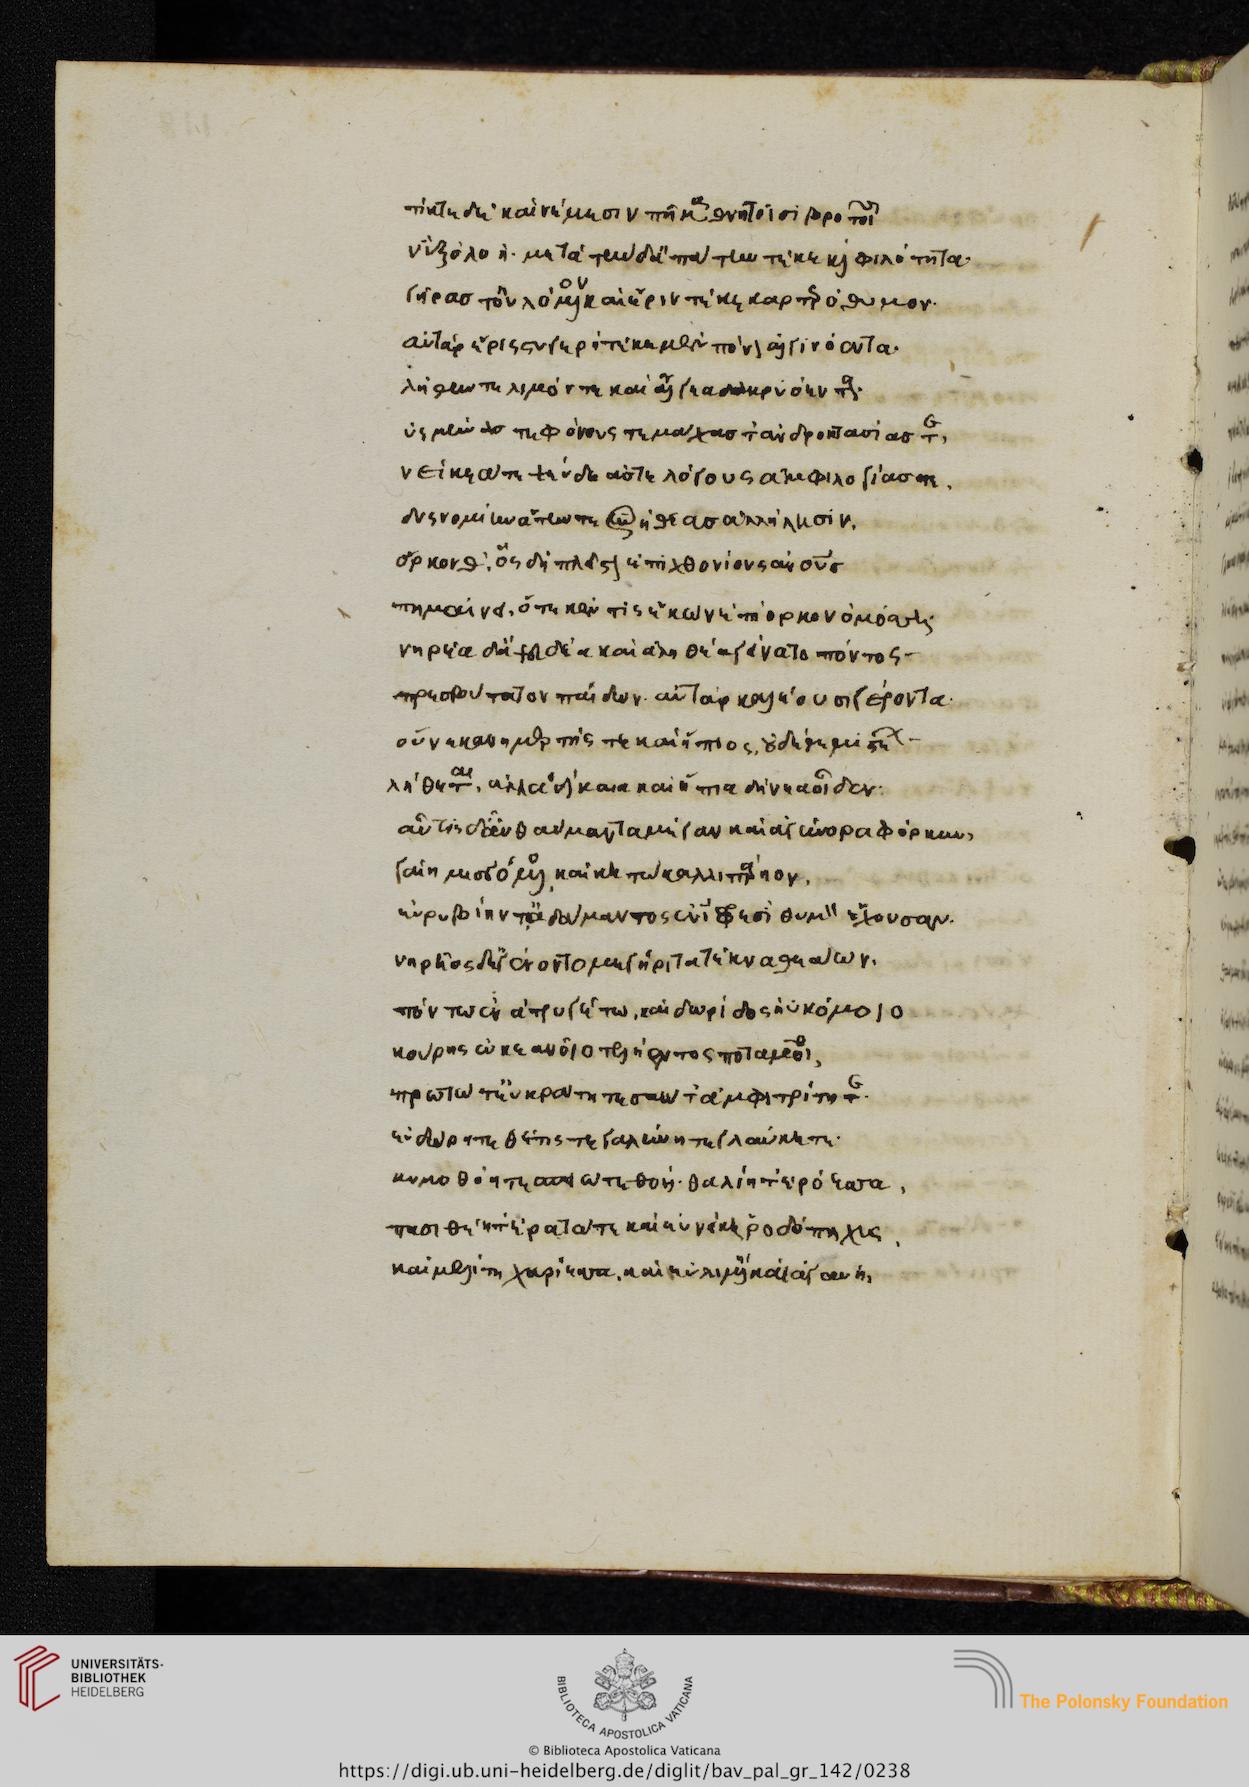 τίκτε δὲ καὶ νέμεσιν πῆμα θνητοῖσι βροτοῖσι
νὺξ ὀλοή. μετὰ τὴν δ' ἀπάτην τέκε καὶ φιλότητα.
γῆρας τ' οὐλόμενον καὶ ἔριν τέκε καρτερόθυμον.
αὐτὰρ ἔρις στυγερὴ τέκε μὲν πόνον ἀλγινόεντα.
λήθην τε λιμόν τε καὶ ἄλγεα δακρυόεντα.
ὑσμίνας τε φόνους τε μάχας τ' ἀνδροκτασίας τε,
νείκεά τε ψευδέας τε λόγους ἀμφιλογίας τε,
δυσνομίην ἄτην τε συνήθεας ἀλλήλῃσιν,
ὅρκον θ', ὃς δὴ πλεῖστον ἐπιχθονίους ἀνθρώπους
πημαίνει, ὅτε κέν τις ἑκὼν ἐπίορκον ὀμόσσῃ.
νηρέα δ' ἀψευδέα καὶ ἀληθέα γείνατο πόντος
πρεσβύτατον παίδων. αὐτὰρ καλέουσι γέροντα.
οὕνεκα νημερτής τε καὶ ἤπιος, οὐδὲ θεμιστέων
λήθεται, ἀλλὰ δίκαια καὶ ἤπια δήνεα οἶδεν.
αὖτις δ' αὖ θαύμαντα μέγαν καὶ ἀγήνορα φόρκυν,
γαίῃ μισγόμενος, καὶ κητὼ καλλιπάρηον,
εὐρυβίην τ' ἀδάμαντος ἐνὶ φρεσὶ θυμὸν ἔχουσαν.
νηρῆος δ' ἐγένοντο μεγήριτα τέκνα θεάων.
πόντῳ ἐν ἀτρυγέτῳ, καὶ δωρίδος ἠϋκόμοιο
κούρης ὠκεανοῖο τελήεντος ποταμοῖο,
πρωτώ τ' εὐκράτη τε σαώ τ' ἀμφιτρίτη τε.
εὐδώρη τε θέτις τε γαλήνη τε γλαύκη τε.
κυμοθόη τε σπειώ τε θοή. θαλίη τ' ἐρόεσσα,
πασιθέη τ' ἐρατώ τε καὶ εὐνείκη ῥοδόπηχυς,
καὶ μελίτη χαρίεσσα, καὶ εὐλιμένη καὶ ἀγαυή,
UNIVERSITÄTS-
BIBLIOTHEK
HEIDELBERG
BIBLIOTECA APOSTOLICA VATICANA
© Biblioteca Apostolica Vaticana
The Polonsky Foundation
https://digi.ub.uni-heidelberg.de/diglit/bav_pal_gr_142/0238